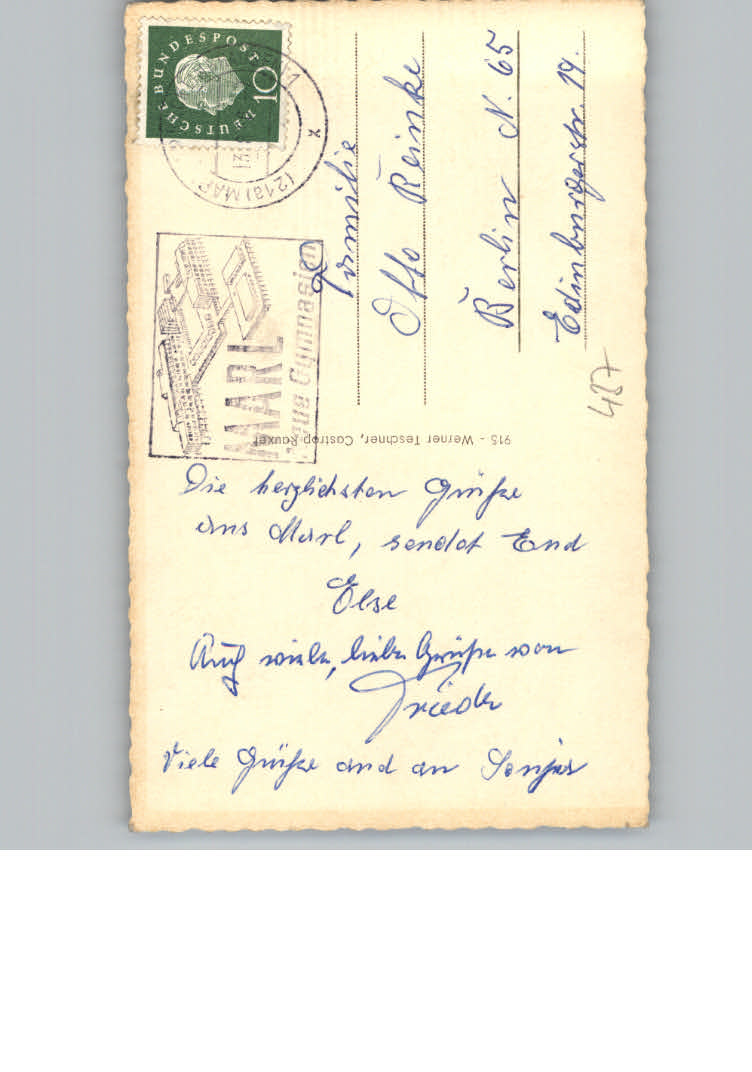 Die herzlichsten Grüße
aus Marl, sendet Euch
Else
Auch viele, liebe Grüße von
Frieda
Viele Grüße auch an Sonja
915 - Werner Teschner, Castrop-Rauxel
DEUTSCHE BUNDESPOST
10
(21a) MAR
x
MARL
Neue Gymnasien
Familie
Otto Reinke
Berlin N. 65
Edinburgerstr. 19.